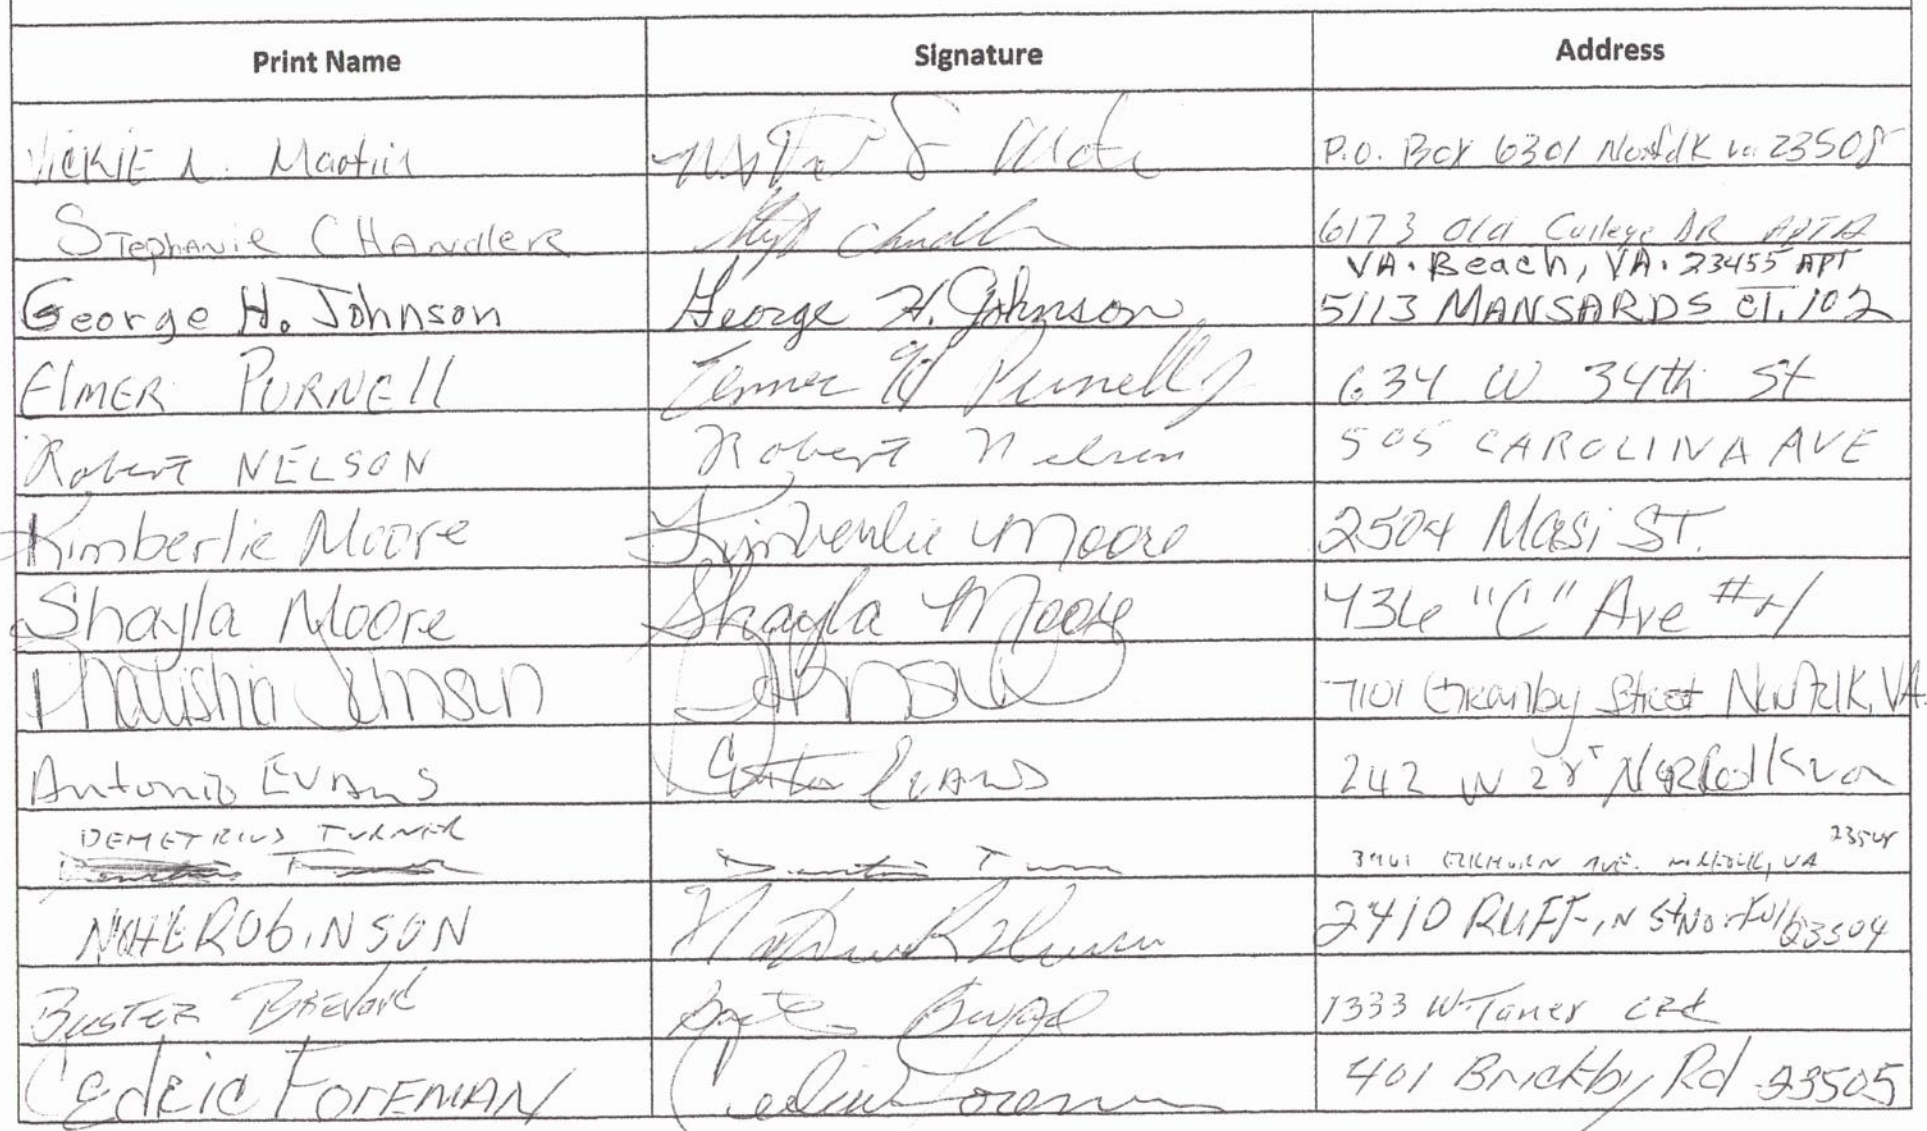 Print Name Signature Address
Vickie L. Martin P.O. Box 6301 Norfolk va 23508
Stephanie CHANdleR Chandler 6173 Old College DR APT A
VA. Beach, VA. 23455 APT
George H. Johnson George H. Johnson 5113 MANSARDS CT. 102
ElMER PURNEll Purnell Jr 634 W 34th St
Robert NELSON Robert Nelson 505 CAROLINA AVE
Kimberlie Moore Kimberlie Moore 2504 Masi ST.
Shayla Moore Shayla Moore 436 "C" Ave #4
Johnson Johnson 7101 Granby Street Norfolk, VA.
Antonio EVANS EVANS 242 W Norfolk va
23508
DEMETRIUS TURNER AVE. NORFOLK, VA
NATE RObiNSON 2410 RUFFIN St Norfolk 23504
BUSTER BREVARD 1333 W. Tanner
CEdRIC FOREMAN Cedric Foreman 401 Brickby Rd 23505